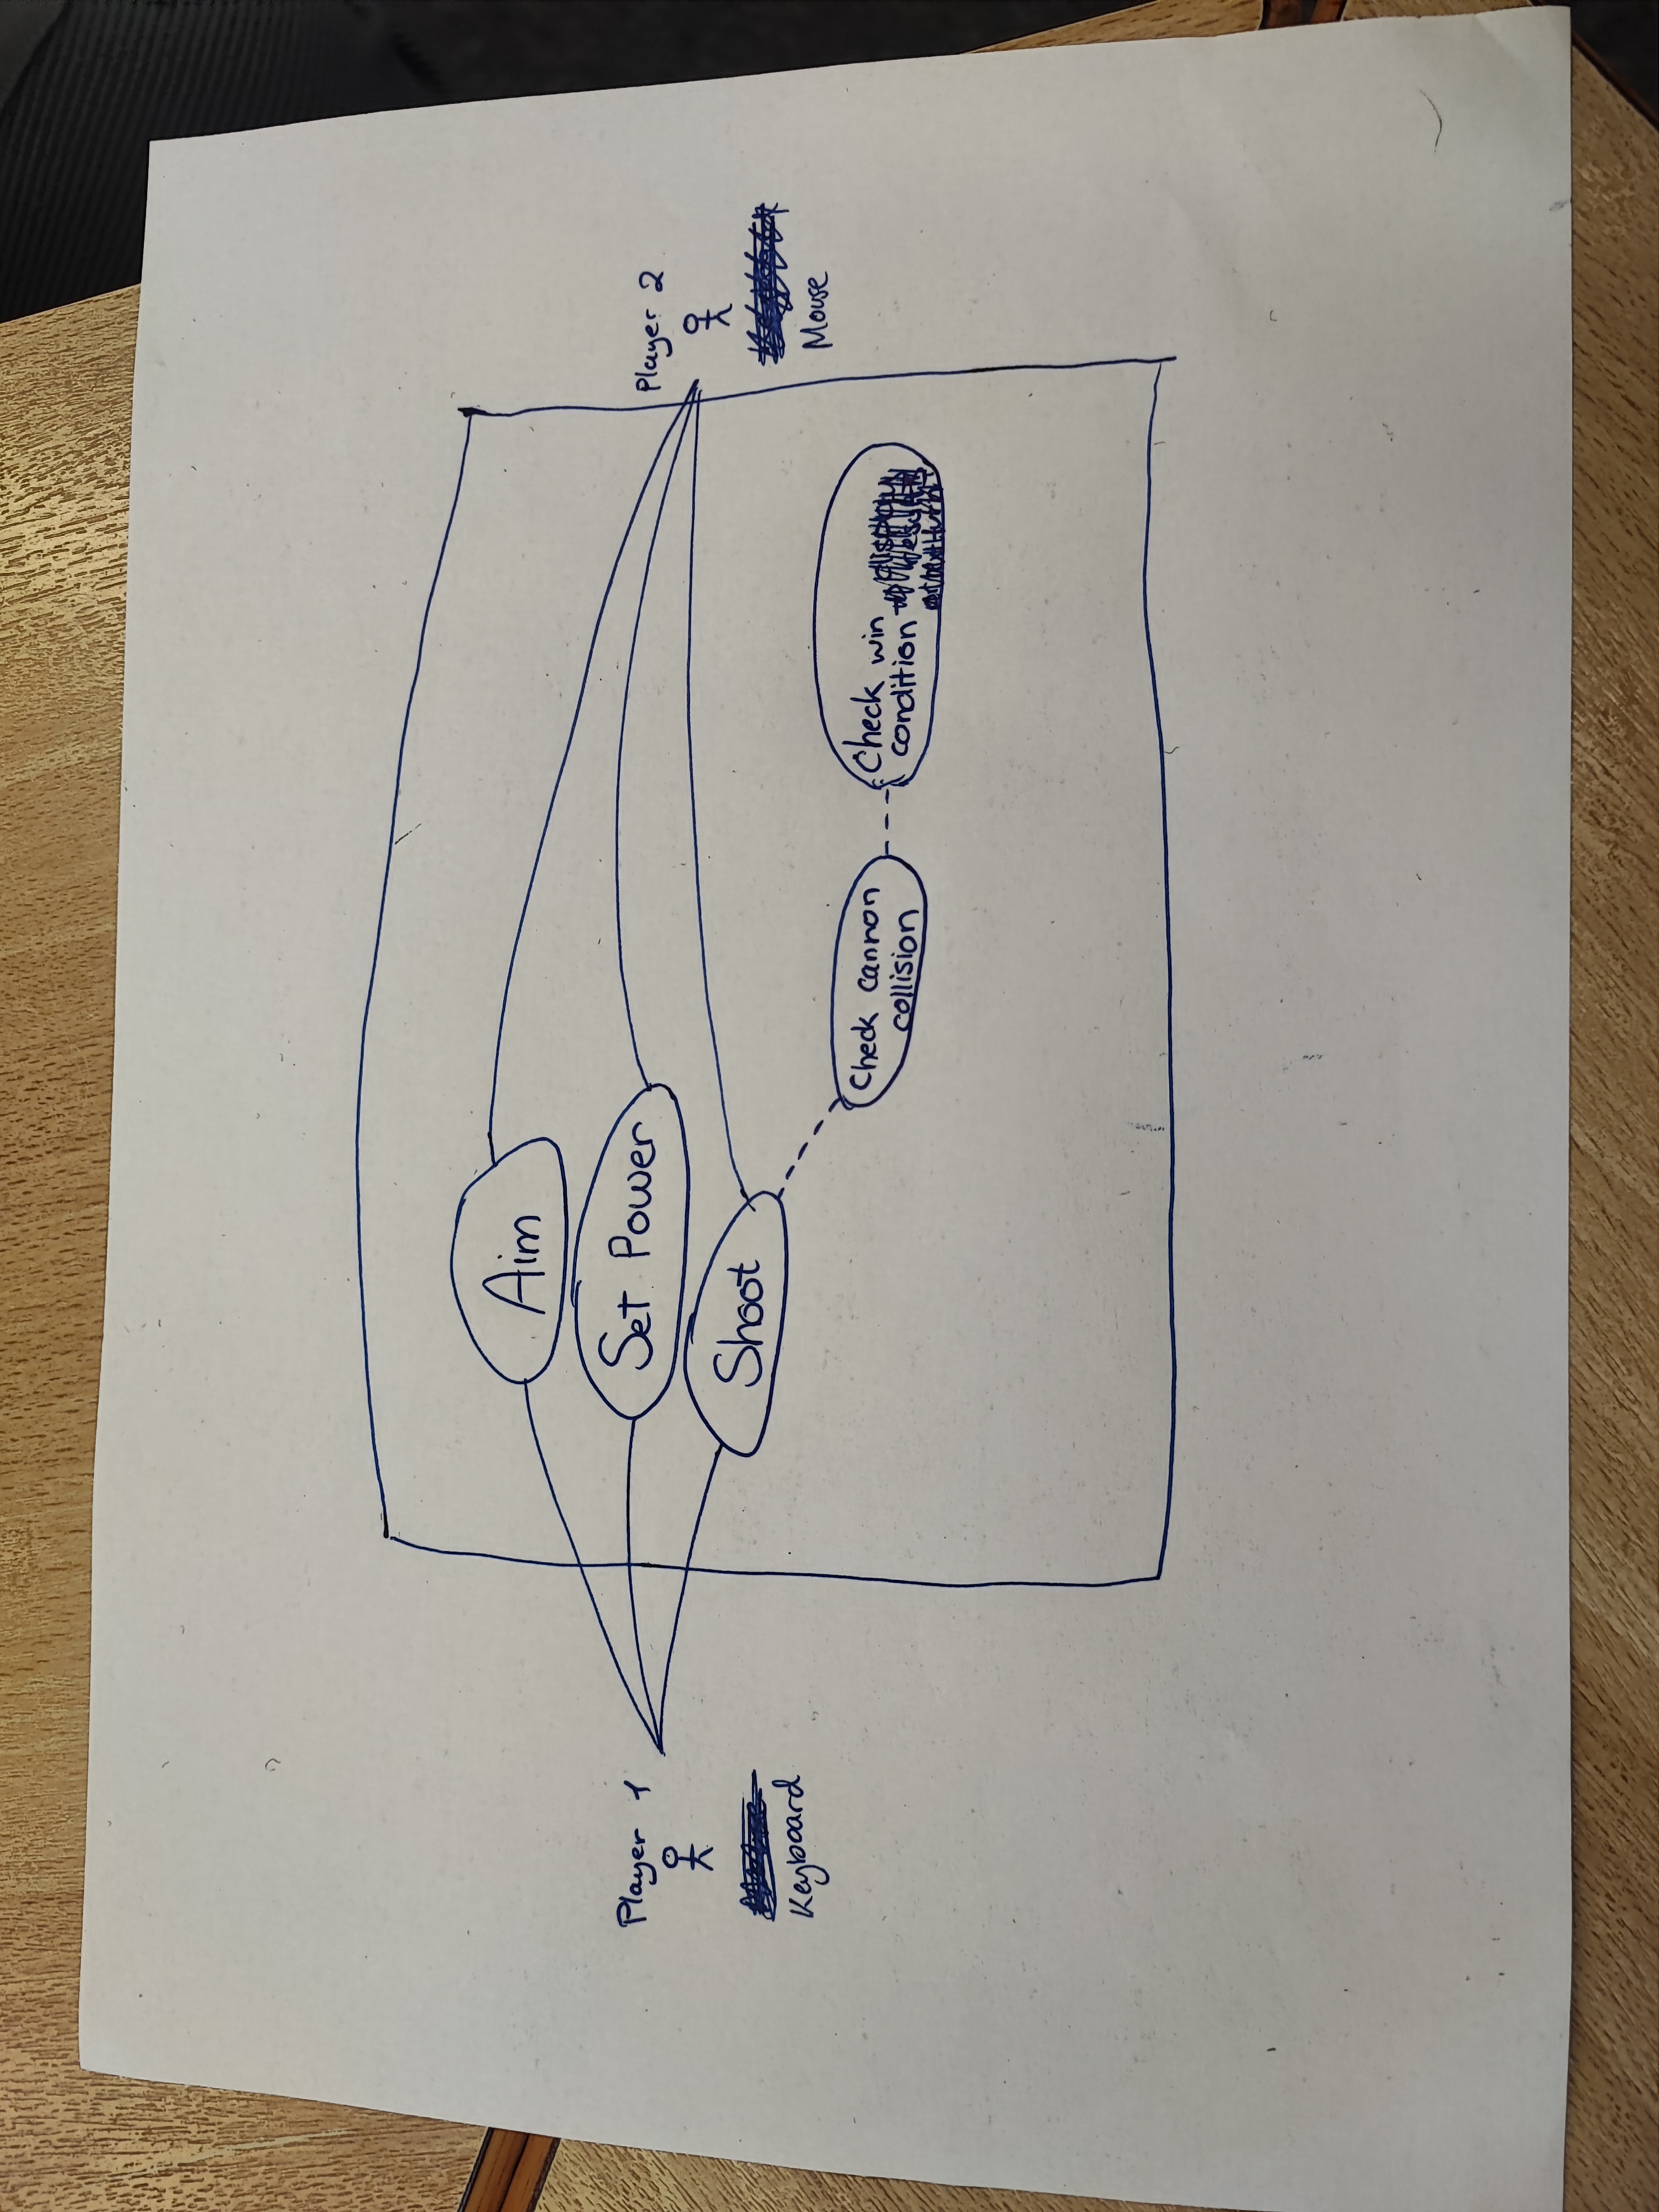 Player 1
Keyboard
Aim
Set Power
Shoot
Check cannon
collision
Check win
condition
Player 2
Mouse